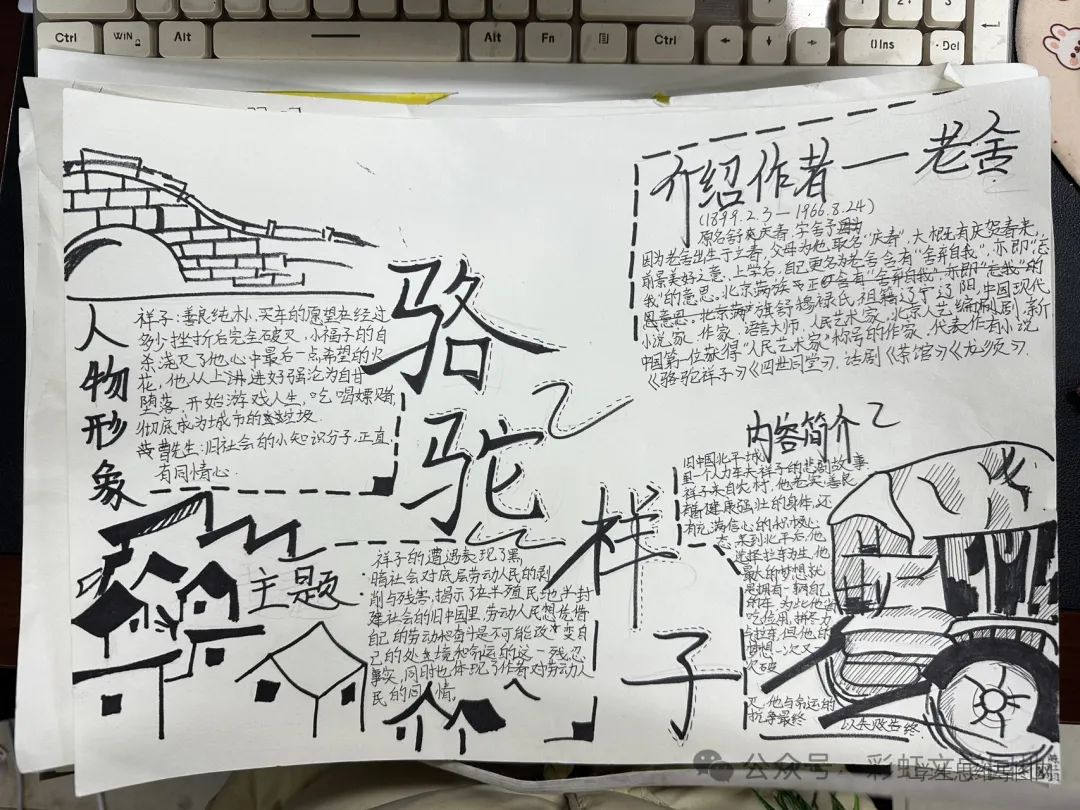 Ctrl
WIN
Alt
Alt
Fn
Ctrl
0Ins
.Del
介绍作者—老舍
(1899.2.3—1966.8.24)
原名舒庆春,字舍予
因为老舍出生于立春,父母为他取名"庆春",大概也有庆贺春来,
前景美好之意,上学后,自己更名为老舍,含有"舍弃自我",亦即"忘
我"的意思,北京满族
北京满族正红旗舒穆禄氏,祖籍辽宁辽阳,中国现代
小说家、作家、语言大师、人民艺术家、北京人艺编剧,新
中国第一位获得"人民艺术家"称号的作家,代表作有小说
《骆驼祥子》《四世同堂》,话剧《茶馆》《龙须》.
骆
驼
祥
子
人
物
形
象
祥子:善良纯朴、买车的愿望在经过
多少挫折后完全破灭,小福子的自
杀浇灭了他心中最后一点希望的火
花,他从上沸进好强沦为自甘
堕落,开始游戏人生,吃喝嫖赌,
彻底成为城市的垃圾.
曹先生:旧社会的小知识分子,正直、
有同情心.
主题
祥子的遭遇表现了黑
暗社会对底层劳动人民的剥
削与残害,揭示了在半殖民地半封
建社会的旧中国里,劳动人民想凭借
自己的劳动和奋斗是不可能改变自
己的处境和命运的这一残忍
事实,同时也体现了作者对劳动人
民的同情。
内容简介
旧中国北平城
里一个人力车夫祥子的悲剧故事
祥子来自农村,他老实、善良
健康强壮的身体,还
有充满信心的积极心
态,来到北平后,他
选择拉车为生,他
最大的梦想就
是拥有一辆自己
的车,为此他省
吃俭用,拼尽力
拉车,但他的
梦想一次又一
次破
灭,他与命运的
抗争最终
以失败告终.
公众号·彩虹